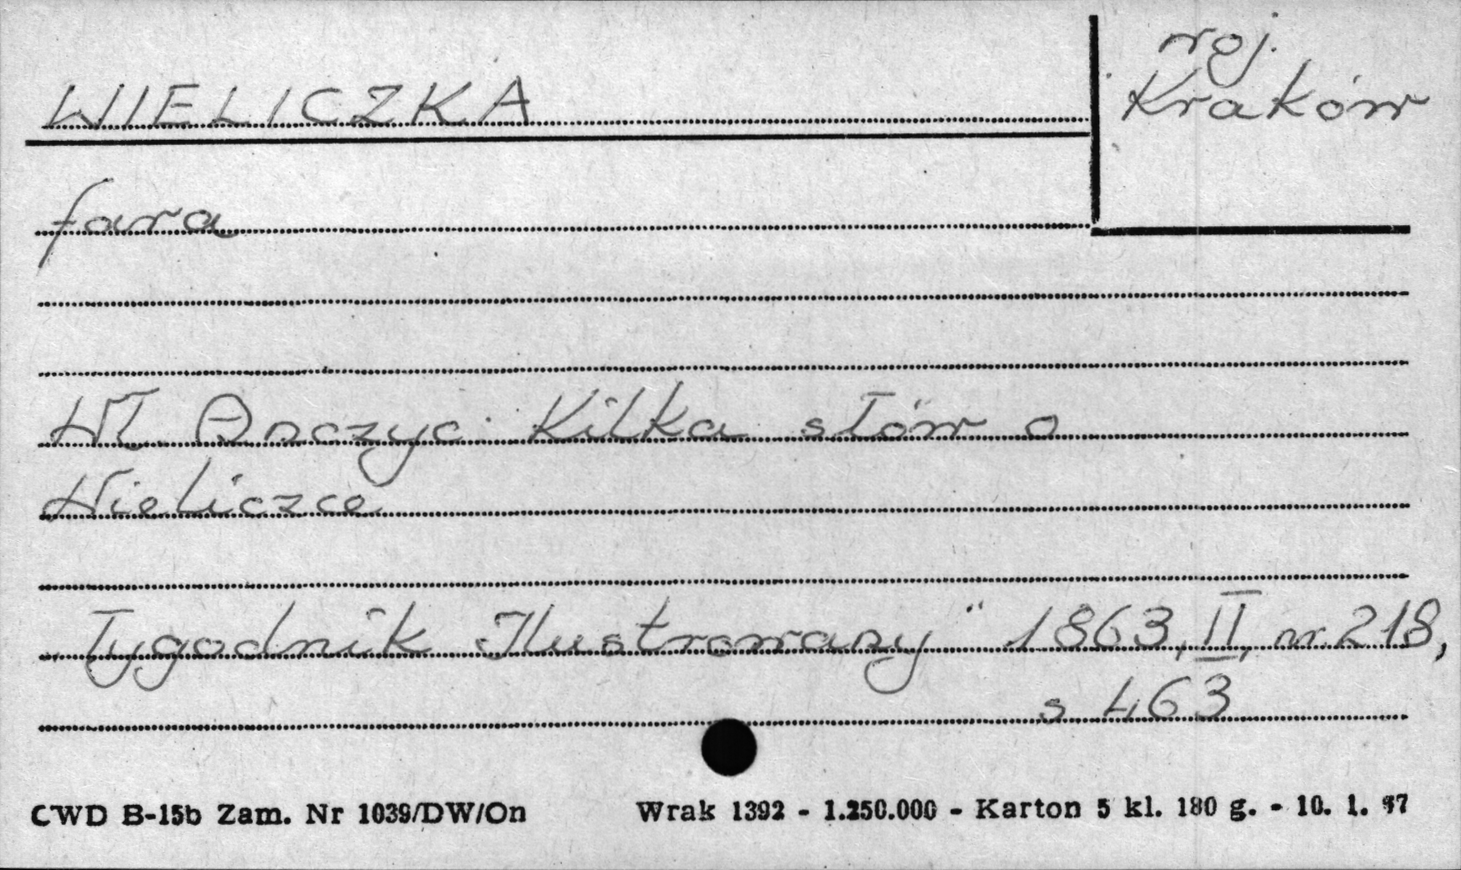 WIELICZKA
woj.
Kraków
fara
Wł Anczyc Kilka słów o
Wieliczce
„Tygodnik Ilustrowany" 1863, II, nr 218,
s 463
CWD B-15b Zam. Nr 1039/DW/On Wrak 1392 - 1.250.000 - Karton 5 kl. 180 g. - 10. 1.